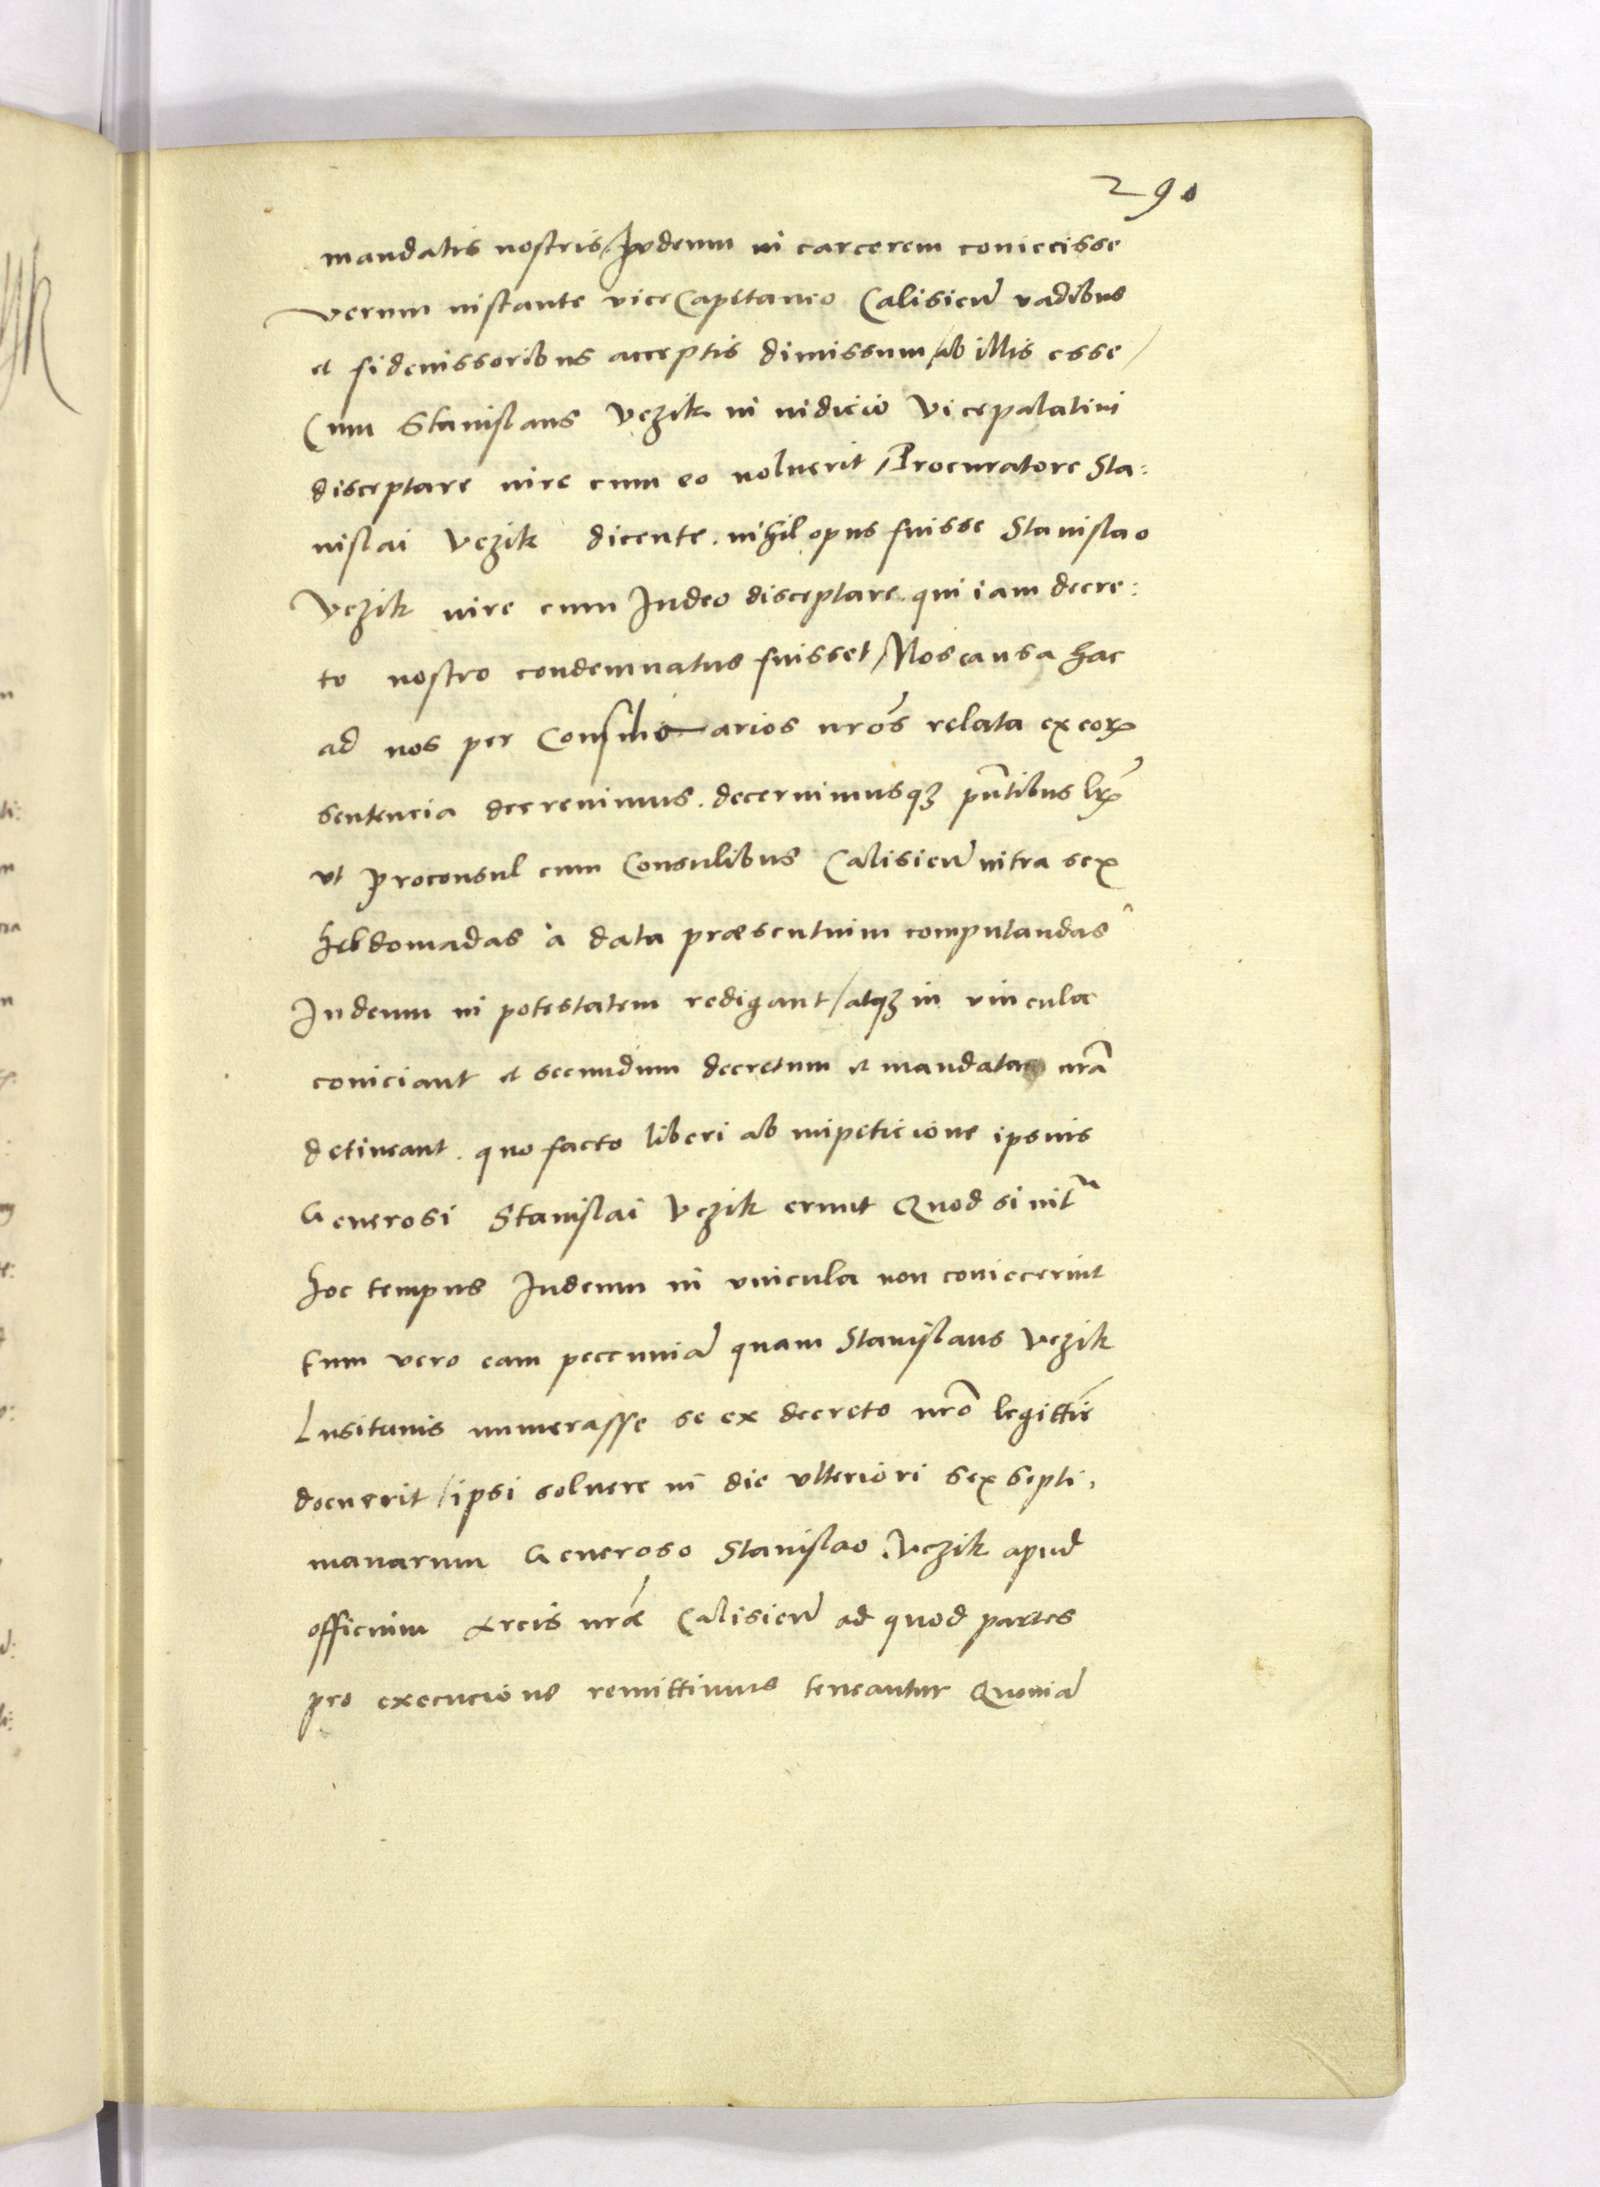 290
mandatis nostris / Iudeum in carcerem coniecisse
verum instante viceCapitaneo Calisien̄ vadibus
et fideiussoribus acceptis dimissum / ab illis esse /
Cum Stanislaus Vezik in iudicio Vicepalatini
disceptare iure cum eo noluerit / Procuratore Sta:
nislai Vezik dicente. nihil opus fuisse Stanislao
Vezik iure cum Iudeo disceptare. qui iam decre:
to nostro condemnatus fuisset / Nos causa hac
ad nos per Consiliarios nr̄os relata ex eoꝝ
sentencia decreuimus. decernimusqꝫ pn̄tibus lr̄is
vt Proconsul cum Consulibus Calisien̄ intra sex
hebdomadas à data præsentium computandas
Iudeum in potestatem redigant / atqꝫ in vincula
coniciant et secundum decretum et mandata nr̄a
detineant. quo facto liberi ab impeticione ipsius
Generosi Stanislai Vezik erunt Quod si intᵃ
hoc tempus Iudeum in vincula non coniecerint
tum vero eam pecuniā quam Stanislaus Vezik
Lusitanis numerasse se ex decreto nr̄o legittīe
docuerit / ipsi soluere in die vlteriori sex septi,
manarum Generoso Stanislao Vezik apud
officium Arcis nr̄æ Calisien̄ ad quod partes
pro execucione remittimus teneantur Quoniā